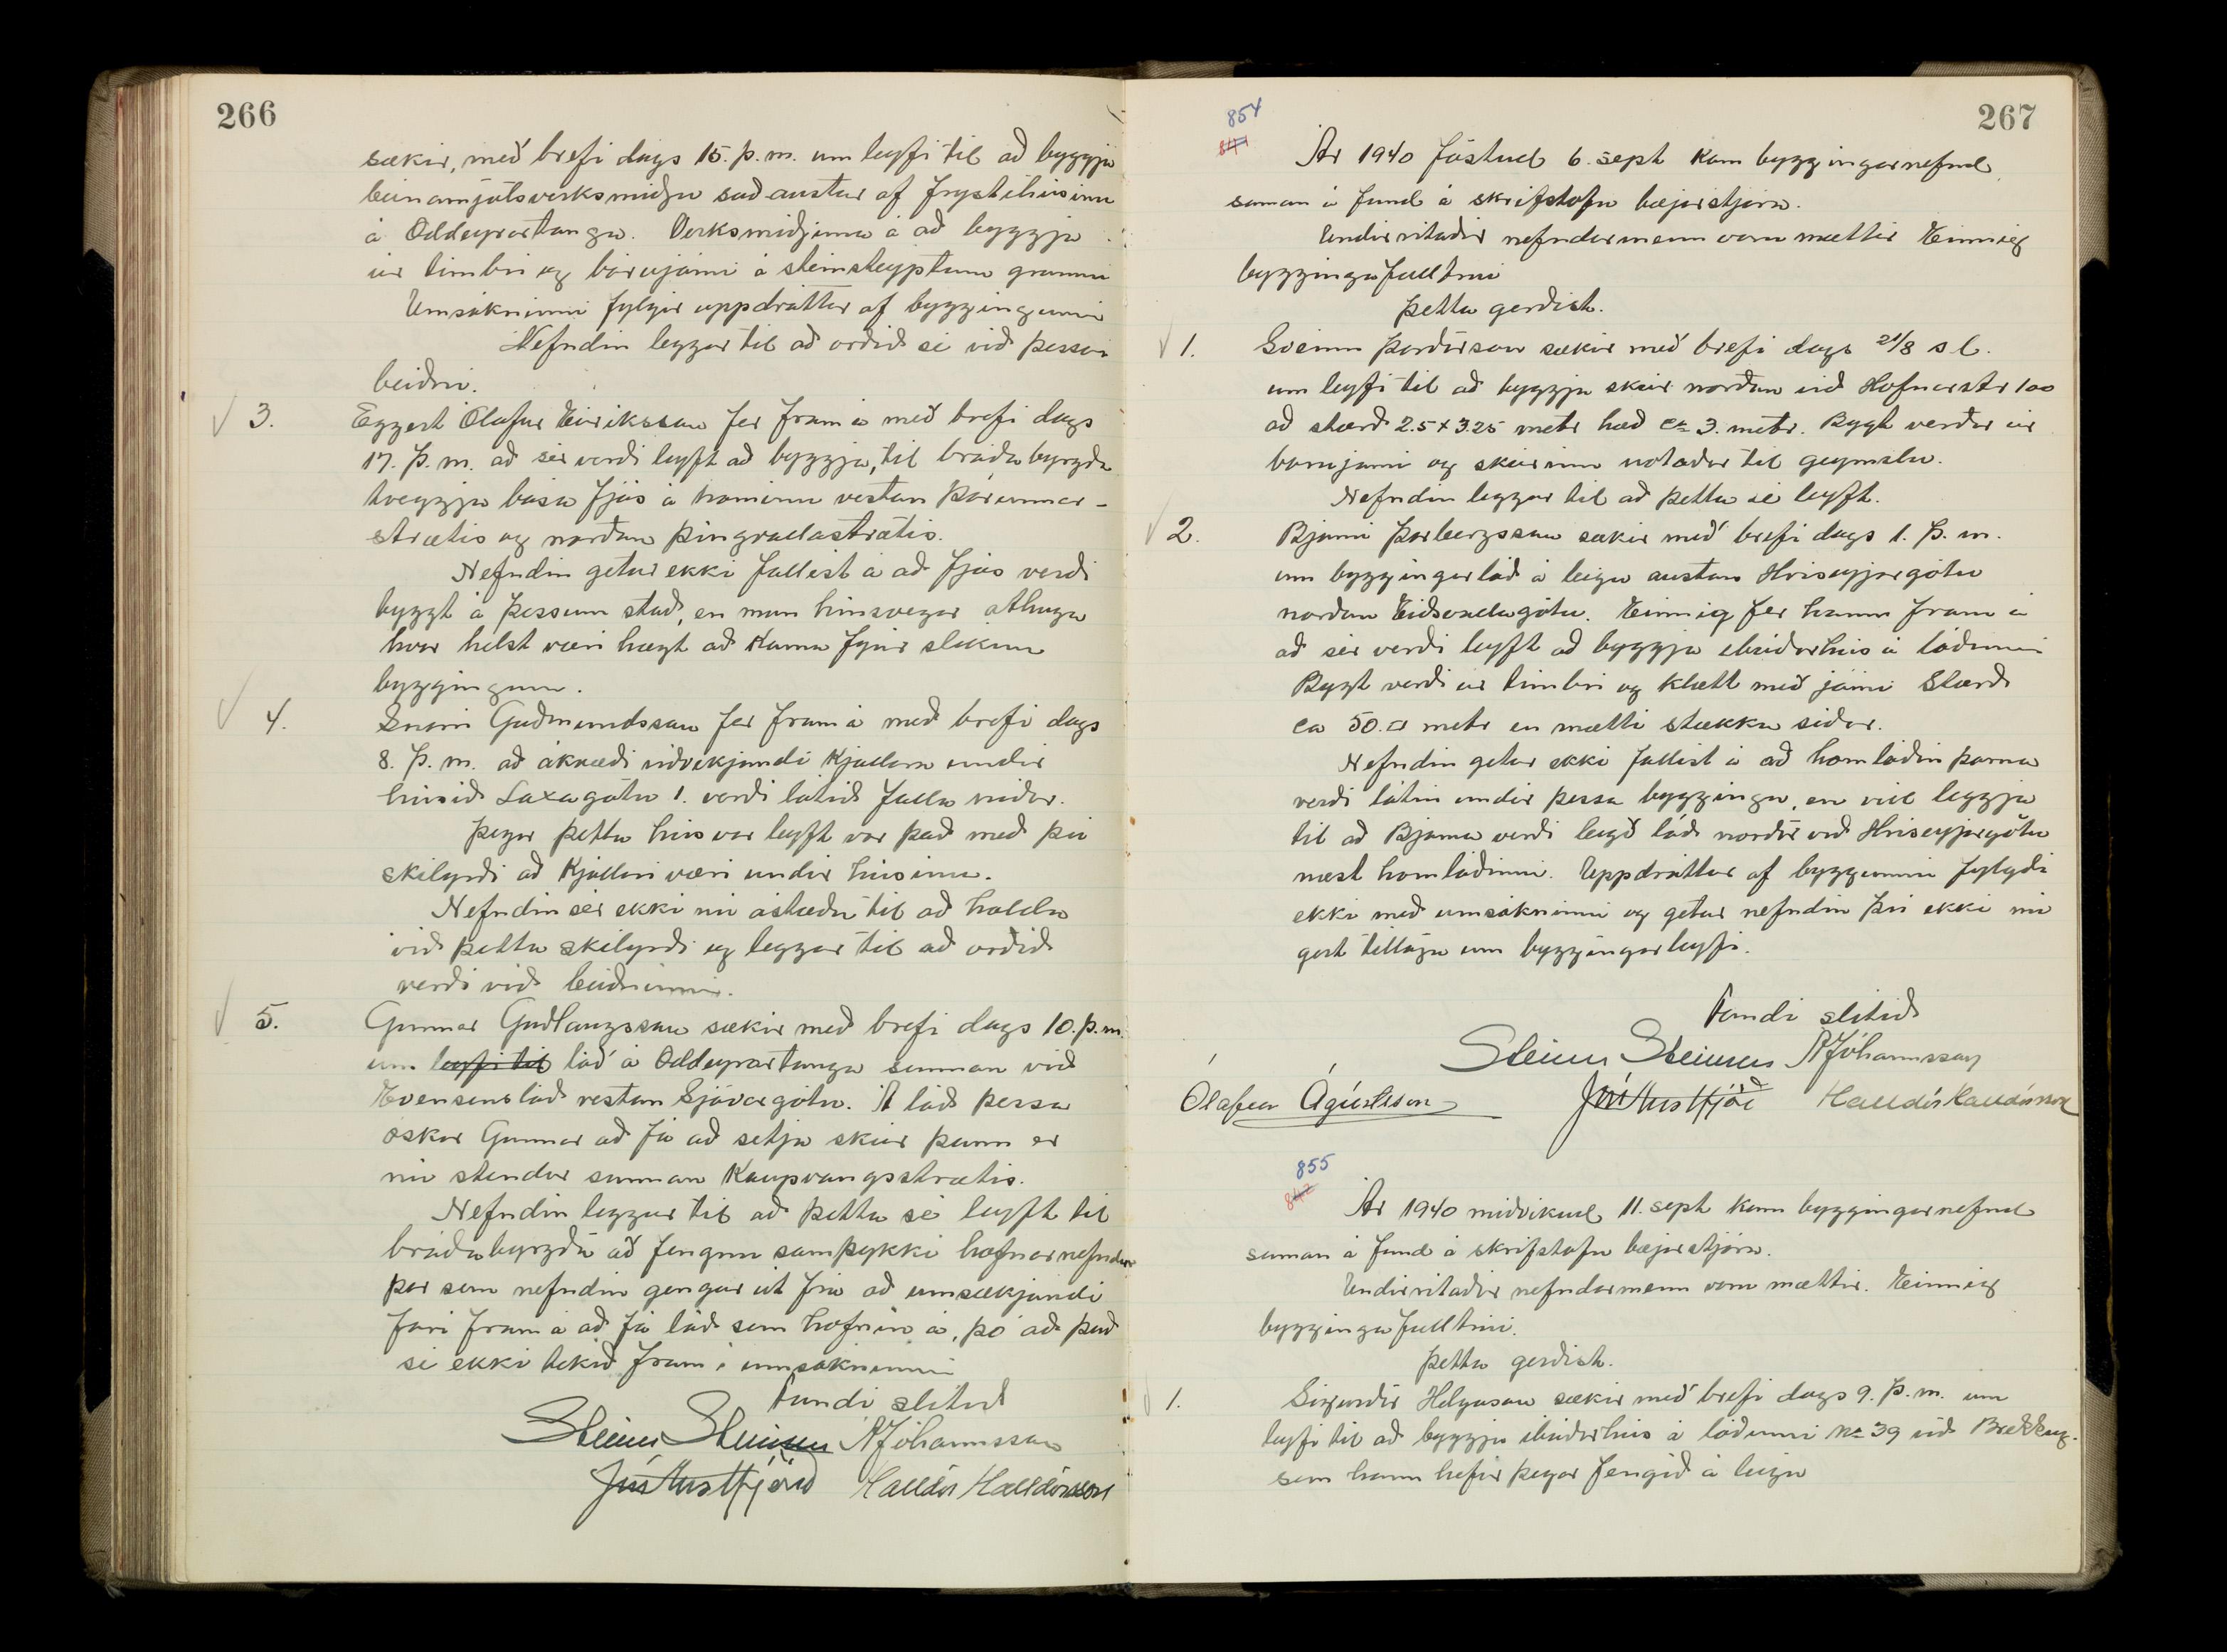 266
sækir, með brefi dags 15. þ.m. um leyfi til að byggja
beinamjölsverksmiðju suð-austur af frystihúsinu
á Oddeyrartanga. Verksmiðjuna á að byggja
úr timbri og bárujárni á steinsteyptum grunni
Umsókninni fylgir uppdráttur af byggingunni
Nefndin leggur til að orðið sé við þessari
beiðni.
3. Eggert Ólafur Eiriksson fer fram á með brefi dags
17. þ.m. að sér verði leyft að byggja, til bráðabyrgða
tveggja bása fjós á horninu vestan Þórunnar-
strætis og norðan Þingvallastrætis.
Nefndin getur ekki fallist á að fjós verði
byggt á þessum stað, en mun hinsvegar athuga
hvar helst væri hægt að koma fyrir slíkum
byggingum.
4. Snorri Guðmundsson fer fram á með brefi dags
8. þ.m. að ákvæði viðvikjandi kjallara undir
húsið Laxagötu 1. verði látið falla niður.
Þegar þetta hús var leyft var það með því
skilyrði að kjallari væri undir húsinu.
Nefndin sér ekki nú ástæðu til að halda
við þetta skilyrði og leggur til að orðið
verði við beiðninni.
5. Gunnar Guðlaugsson sækir með brefi dags 10. þ.m.
um leyfi til lóð á Oddeyrartanga sunnan við
Evensenslóð vestan Sjávargötu. Á lóð þessa
óskar Gunnar að fá að setja skúr þann er
nú stendur sunnan Kaupvangsstrætis.
Nefndin leggur til að þetta sé leyft til
bráðabyrgða að fengnu samþykki hafnarnefndar
þar sem nefndin gengur út frá að umsækjandi
fari fram á að fá lóð sem höfnin á, þó að það
sé ekki tekið fram í umsókninni
Fundi slitið
Steinn Steinsen Jóhannsson
Halldór Halldórsson
267
854
841
Ár 1940 föstud 6. sept kom byggingarnefnd
saman á fund á skrifstofu bæjarstjóra.
Undirritaðir nefndarmenn voru mættir Einnig
byggingafulltrúi
Þetta gerðist.
1. Sveinn Þórðarson sækir með brefi dags 21/8 s l.
um leyfi til að byggja skúr norðan við Hafnarstr 100
að stærð 2.5 x 3.25 metr hæð ca 3. metr. Bygt verður úr
barujarni og skúrinn notaður til geymslu.
Nefndin leggur til að þetta sé leyft.
2. Bjarni Þorbergsson sækir með brefi dags 1. þ. m.
um byggingarlóð á leigu austan Hríseyjargötu
norðan Eiðsvallagötu. Einnig fer hann fram á
að sér verði leyft að byggja íbúðarhús á lóðinni
Bygt verði úr timbri og klætt með járni Stærð
ca 50.□ metr en mætti stækka síðar.
Nefndin getur ekki fallist á að hornlóðin þarna
verði látin undir þessa byggingu, en vill leggja
til að Bjarna verði leigð lóð norður við Hríseyjargötu
næst hornlóðinni. Uppdráttur af byggunni fylgdi
ekki með umsókninni og getur nefndin því ekki nú
gert tillögu um byggingarleyfi.
Fundi slitið
Steinn Steinsen Jóhannsson
Ólafur Ágústsson Halldór Halldórsson
855
842
Ár 1940 miðvikud 11. sept kom byggingarnefnd
saman á fund á skrifstofu bæjarstjóra.
Undirritaðir nefndarmenn voru mættir. Einnig
byggingafulltrúi.
Þetta gerðist.
1. Sigurður Helgason sækir með brefi dags 9. þ.m. um
leyfi til að byggja íbúðarhús á lóðinni No 39 við Brekkug.
sem hann hefir þegar fengið á leigu